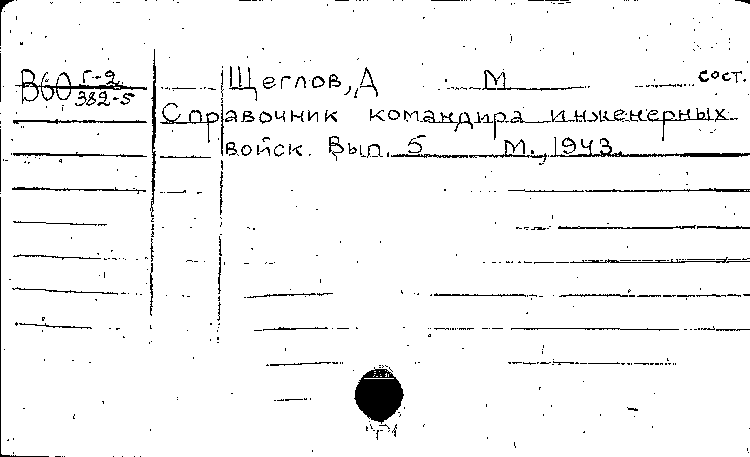 В60 Г-2/382-5
Щеглов, Д М сост.
Справочник командира инженерных
войск. Вып. 5 М., 1943.